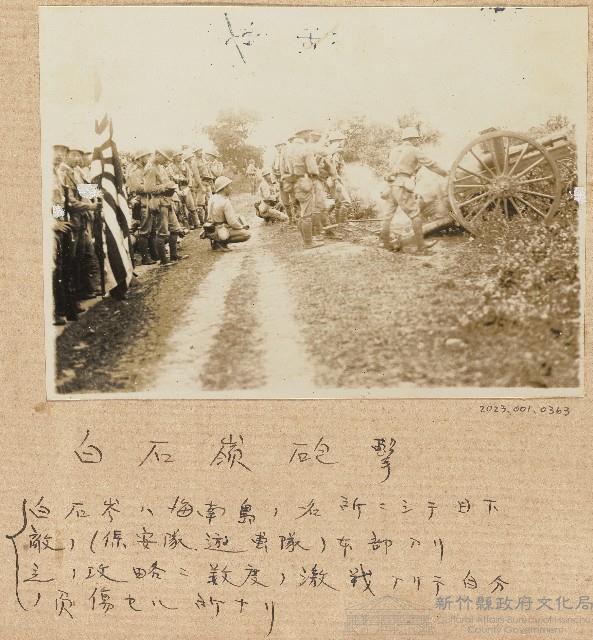 2023.001.0363
白石嶺砲撃
白石岑ハ海南島ノ名所ニシテ目下
敵ノ(保安隊遊撃隊)本部アリ
之ノ攻略ニ数度ノ激戦アリテ自分
ノ負傷セル所ナリ
新竹縣政府文化局
Cultural Affairs Bureau of Hsinchu
County Government